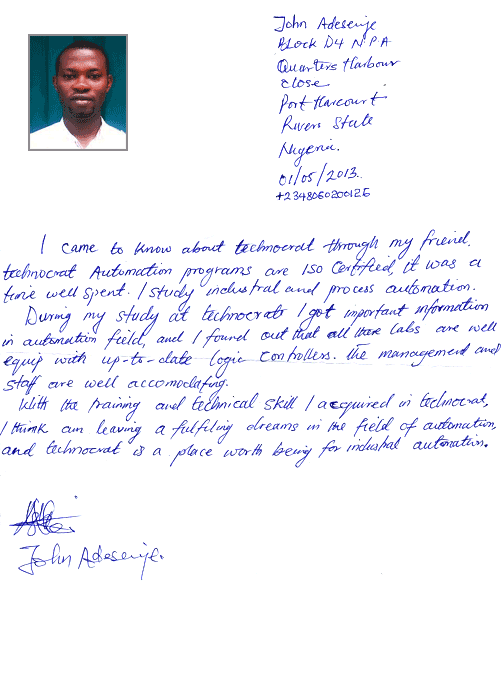 John Adesenje
Block D4 N.P.A
Quarters Harbour
close
Port Harcourt
Rivers State
Nigeria.
01/05/2013.
+2348060200126
I came to know about technocrat through my friend.
technocrat Automation programs are ISO Certified, it was a
time well spent. I study industral and process automation.
During my study at technocrats I got important information
in automation field, and I found out that all there Labs are well
equip with up-to-date logic controllers. The management and
staff are well accomodating.
With the training and technical skill I acquired in technocrat,
I think am leaving a fulfiling dreams in the field of automation,
and technocrat is a place worth being for industral automation.
John Adesenje.